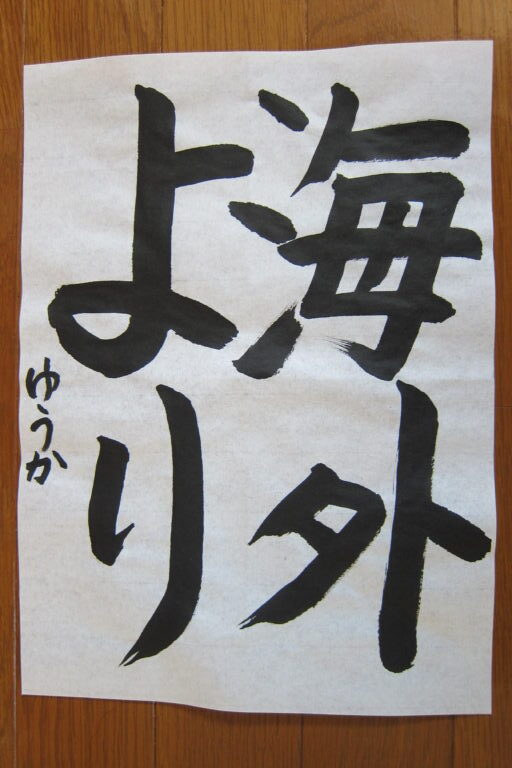 海外
より
ゆうか